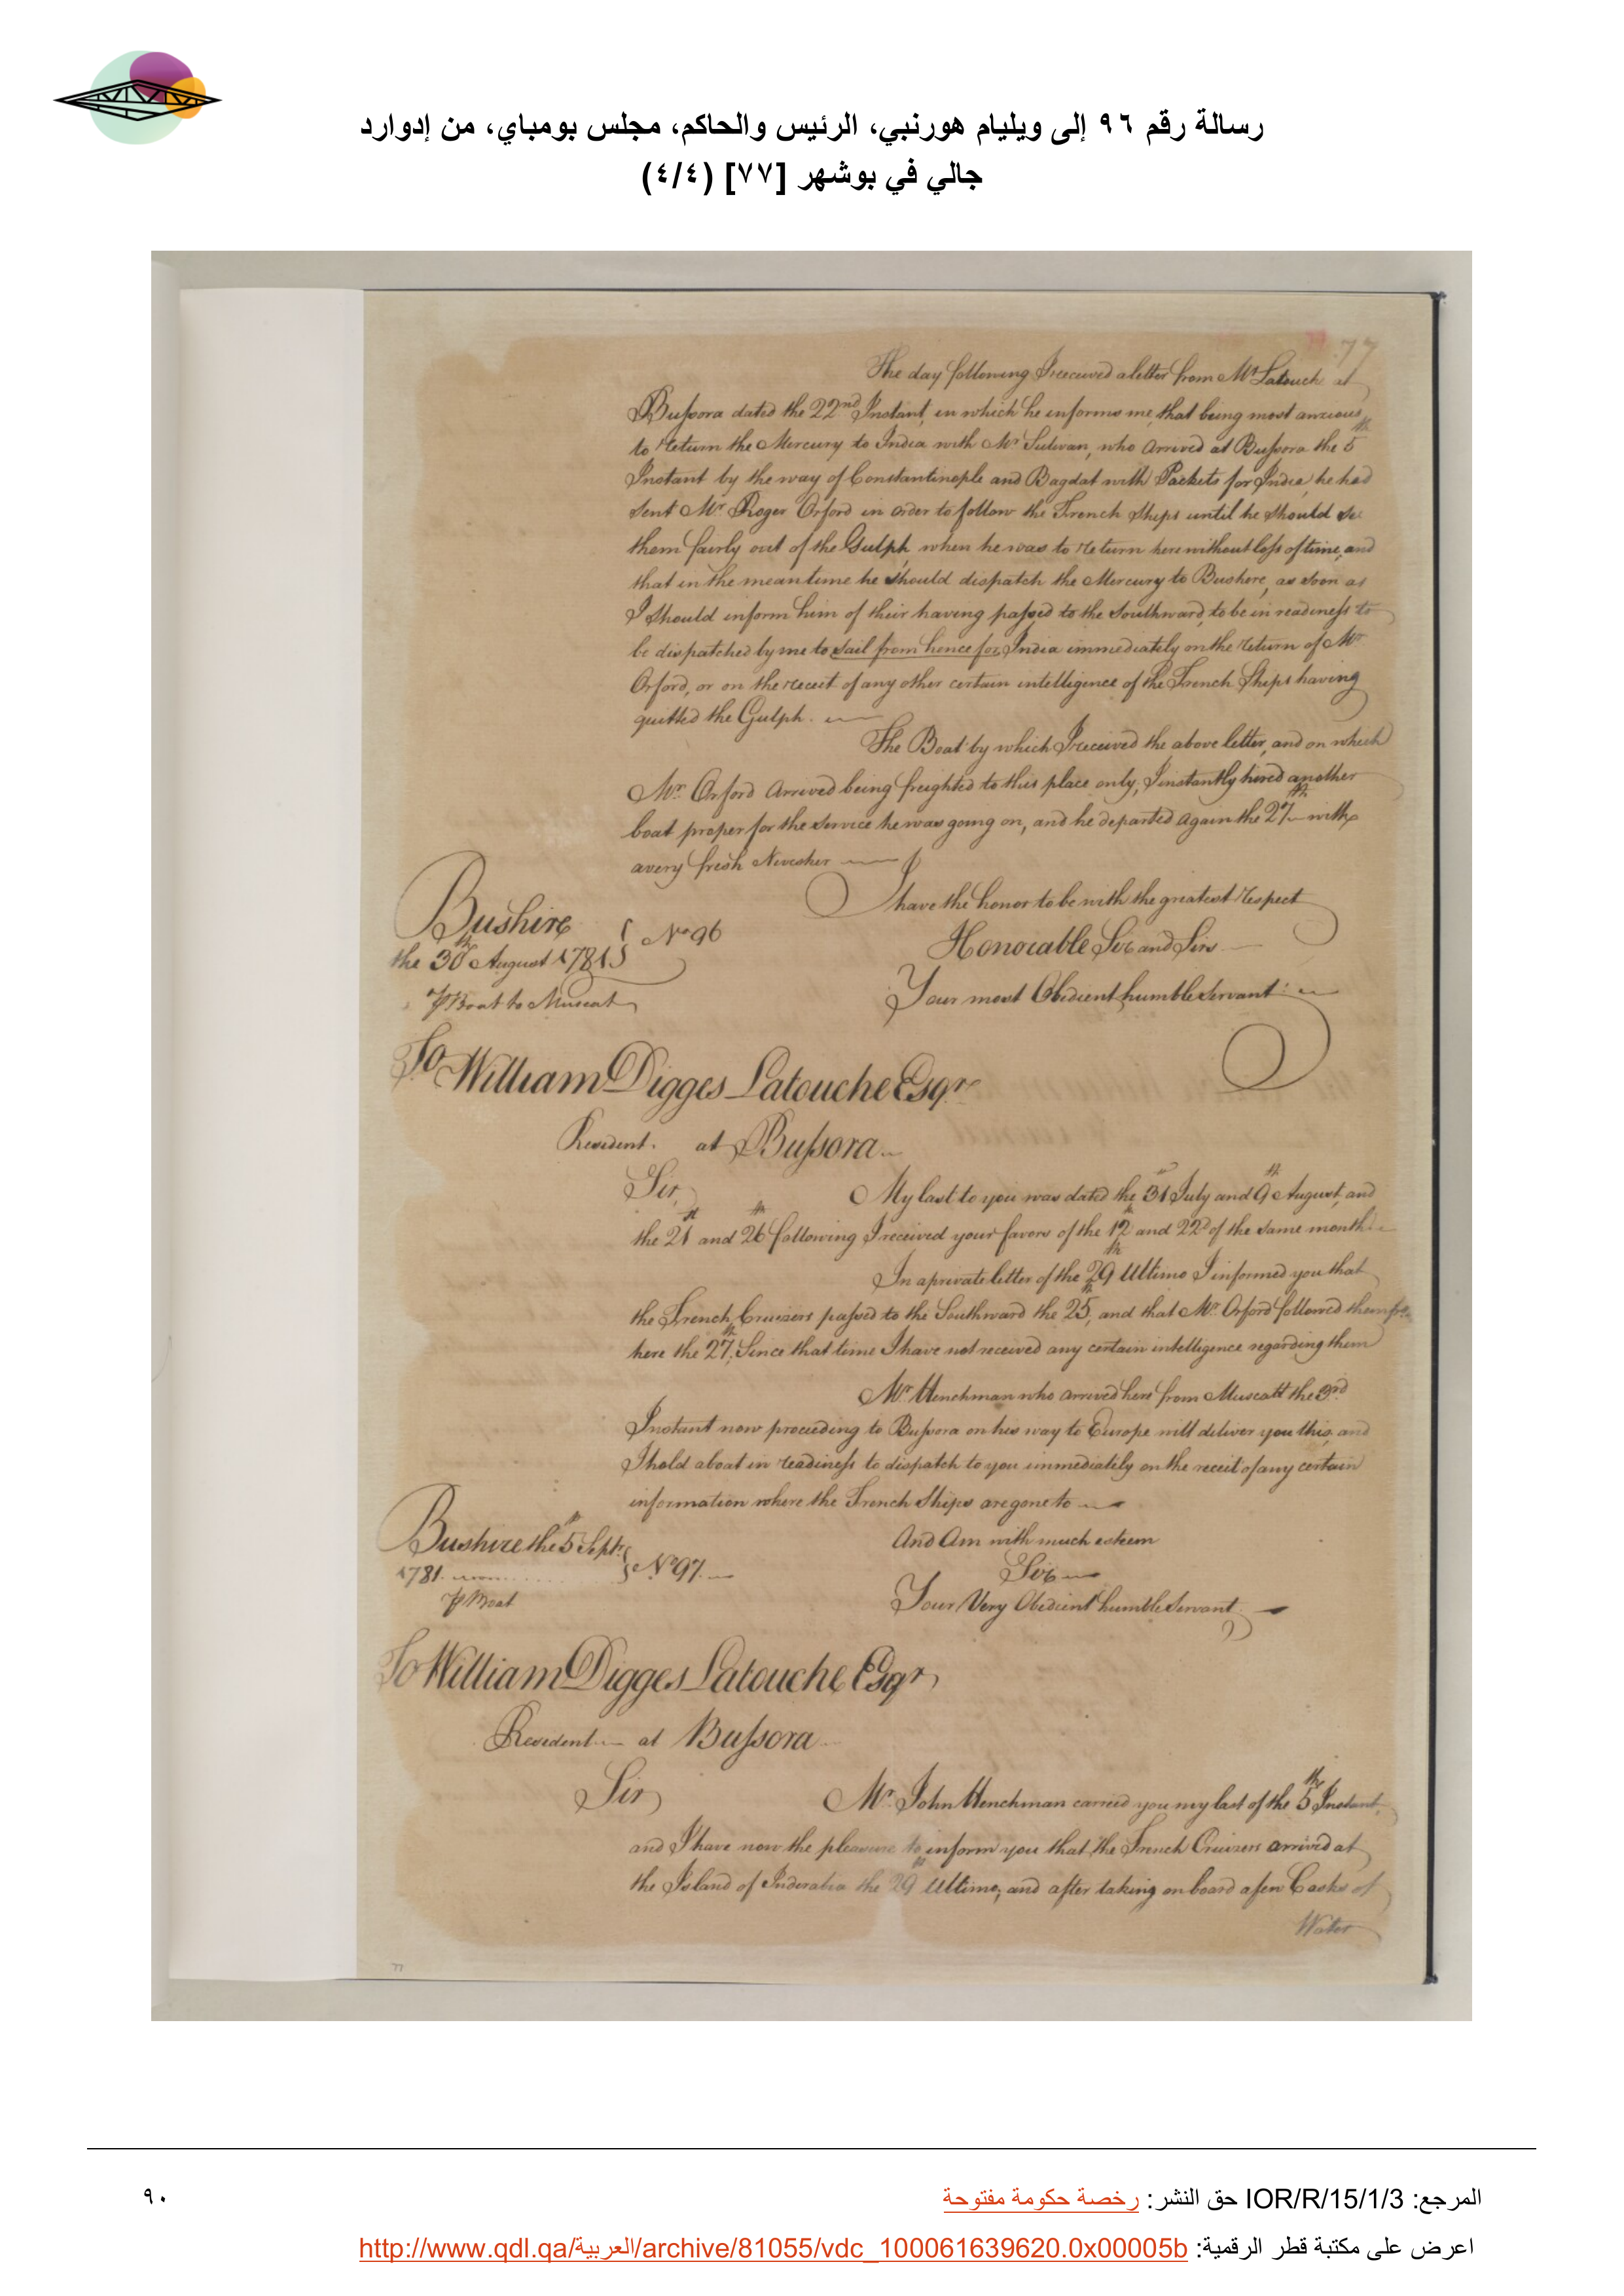 رسالة رقم ٩٦ إلى ويليام هورنبي، الرئيس والحاكم، مجلس بومباي، من إدوارد
جالي في بوشهر [٧٧] (٤/٤)
77
The day following I received a letter from Mr Latouche at
Bussora dated the 22nd Instant, in which he informs me, that being most anxious
to return the Mercury to India with Mr Sulivan, who Arrived at Bussora the 5th
Instant by the way of Constantinople and Bagdat with Packets for India, he had
sent Mr Roger Orford in order to follow the French Ships until he should see
them fairly out of the Gulph, when he was to return here without loss of time, and
that in the meantime he should dispatch the Mercury to Bushere, as soon as
I should inform him of their having passed to the Southward, to be in readiness to
be dispatched by me to sail from hence for India immediately on the return of Mr
Orford, or on the receit of any other certain intelligence of the French Ships having
quitted the Gulph.
The Boat by which I received the above letter, and on which
Mr. Orford Arrived being freighted to this place only, I instantly hired another
boat proper for the service he was going on, and he departed again the 27th with
a very fresh
I have the honor to be with the greatest respect
Bushire
the 30th August 1781 } No 96
Honorable Sir and Sirs
P Boat to Muscat
Your most Obedient humble Servant
To William Digges Latouche Esqr
Resident. at Bussora.
Sir, My last to you was dated the 31st July and 9th August, and
the 21st and 26th following I received your favors of the 12th and 22d of the same month.
In a private letter of the 29th Ultimo I informed you that
the French Cruizers passed to the Southward the 25th, and that Mr. Orford followed them
here the 27th, Since that time I have not received any certain intelligence regarding them
Mr. Henchman who arrived here from Muscatt the 3rd
Instant now proceeding to Bussora on his way to Europe will deliver you this, and
I hold a boat in readiness to dispatch to you immediately on the receit of any certain
information where the French Ships are gone to
Bushire the 5th Septr.
And Am with much esteem
1781. } No 97.
Sir
P Boat
Your Very Obedient humble Servant
To William Digges Latouche Esqr,
Resident at Bussora
Sir Mr. John Henchman carried you my last of the 5th Instant,
and I have now the pleasure to inform you that the French Cruizers arrived at
the Island of Inderabia the 29th Ultimo; and after taking on board a few Casks of
Water
77
المرجع: IOR/R/15/1/3 حق النشر: رخصة حكومة مفتوحة
٩٠
اعرض على مكتبة قطر الرقمية: http://www.qdl.qa/العربية/archive/81055/vdc_100061639620.0x00005b